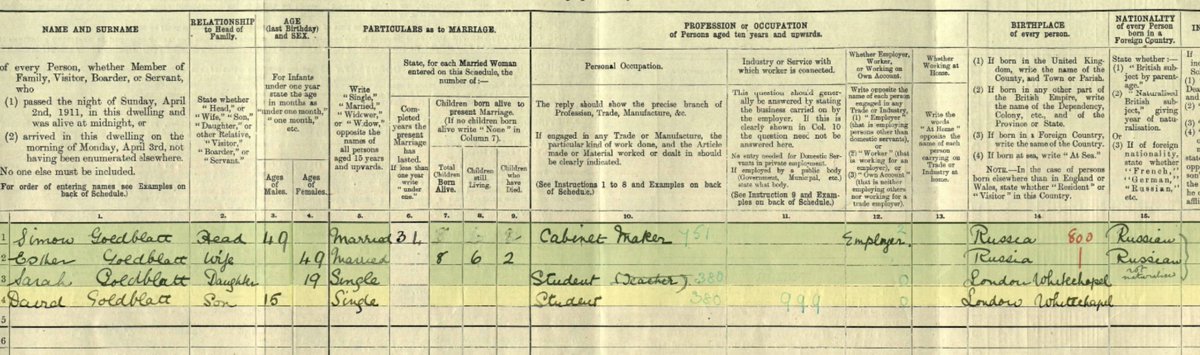 NAME AND SURNAME
of every Person, whether Member of
Family, Visitor, Boarder, or Servant,
who
(1) passed the night of Sunday, April
2nd, 1911, in this dwelling and
was alive at midnight, or
(2) arrived in this dwelling on the
morning of Monday, April 3rd, not
having been enumerated elsewhere.
No one else must be included.
For order of entering names see Examples on
back of Schedule.
1.
RELATIONSHIP
to Head of
Family.
State whether
"Head," or
"Wife," "Son,"
"Daughter," or
other Relative,
"Visitor,"
"Boarder," or
"Servant."
2.
AGE
(last Birthday)
and SEX.
For Infants
under one year
state the age
in months as
"under one
month," "one
month," etc.
Ages
of
Males.
Ages
of
Females.
3.
4.
PARTICULARS as to MARRIAGE.
Write
"Single,"
"Married,"
"Widower,"
or "Widow,"
opposite the
names of all
persons aged
15 years
and upwards.
5.
State, for each Married Woman
entered on this Schedule, the
number of:—
Com-
pleted
years the
present
Marriage
has
lasted.
If less than
one year
write
"under
one."
6.
Children born alive to
present Marriage.
(If no children born
alive write "None" in
Column 7).
Total
Children
Born
Alive.
7.
Children
still
Living.
8.
Children
who
have
Died.
9.
PROFESSION or OCCUPATION
of Persons aged ten years and upwards.
Personal Occupation.
The reply should show the precise branch of
Profession, Trade, Manufacture, &c.
If engaged in any Trade or Manufacture, the
particular kind of work done, and the Article
made or Material worked or dealt in should
be clearly indicated.
(See Instructions 1 to 8 and Examples on back
of Schedule.)
10.
Industry or Service with
which worker is connected.
This question should gener-
ally be answered by stating
the business carried on by
the employer. If this is
clearly shown in Col. 10
the question need not be
answered here.
No entry needed for Domestic Ser-
vants in private employment.
If employed by a public body
(Government, Municipal, etc.)
state what body.
(See Instruction 9 and Exam-
ples on back of Schedule.)
11.
Whether Employer,
Worker,
or Working on
Own Account.
Write opposite the
name of each person
engaged in any
Trade or Industry,
(1) "Employer"
(that is employing
persons other than
domestic servants),
or
(2) "Worker" (that
is working for an
employer), or
(3) "Own Account"
(that is neither
employing others
nor working for a
trade employer).
12.
Whether
Working at
Home.
Write the
words
"At Home"
opposite the
name of each
person
carrying on
Trade or
Industry at
home.
13.
BIRTHPLACE
of every person.
(1) If born in the United King-
dom, write the name of the
County, and Town or Parish.
(2) If born in any other part of
the British Empire, write
the name of the Dependency,
Colony, etc., and of the
Province or State.
(3) If born in a Foreign Country,
write the name of the Country.
(4) If born at sea, write "At Sea."
NOTE.—In the case of persons
born elsewhere than in England or
Wales, state whether "Resident" or
"Visitor" in this Country.
14.
NATIONALITY
of every Person
born in a
Foreign Country.
State whether:—
(1) "British sub-
ject by parent-
age."
(2) "Naturalised
British sub-
ject," giving
year of natu-
ralisation.
Or
(3) If of foreign
nationality,
state whether
"French,"
"German,"
"Russian,"
etc.
15.
1 Simon Goldblatt Head 49 Married 31 8 6 2 Cabinet Maker 751 Employer 2 Russia 800 Russian
2 Esther Goldblatt Wife 49 Married 8 6 2 Russia 1 Russian
not naturalised
3 Sarah Goldblatt Daughter 19 Single Student (Teacher) 380 0 London Whitechapel
4 David Goldblatt Son 15 Single Student 380 999 0 London Whitechapel
5
6